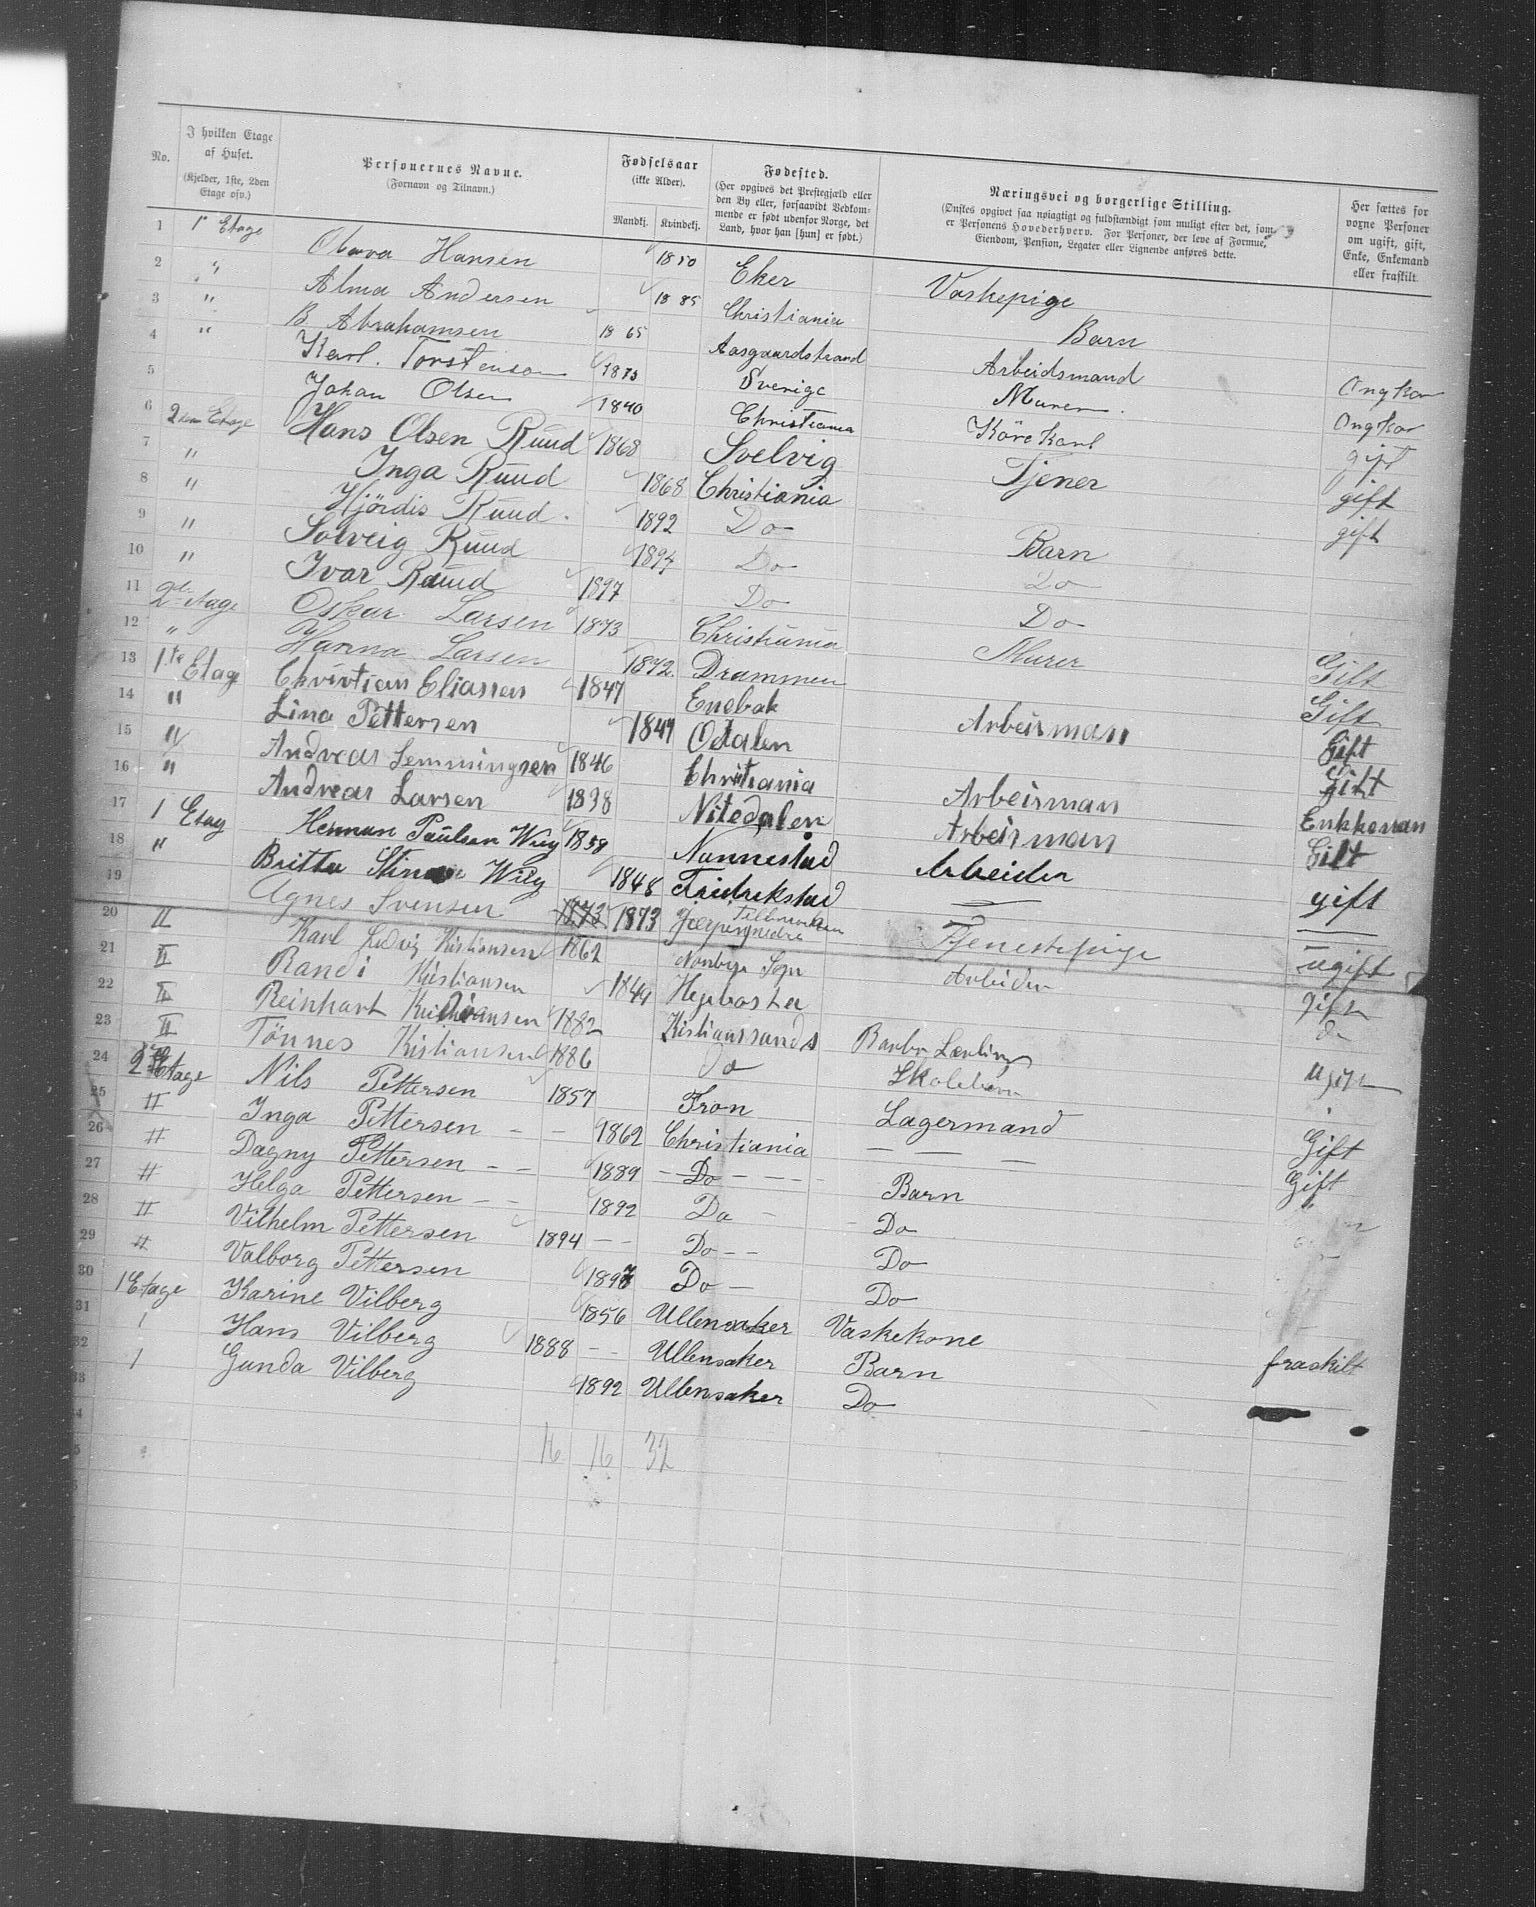 No.
I hvilken Etage af Huset. (Kjelder, 1ste, 2den Etage osv.)
Personernes Navne. (Fornavn og Tilnavn.)
Fødselsaar (ikke Alder). Mandkj. Kvindekj.
Fødested. (Her opgives det Prestegjæld eller den By eller, forsaavidt Vedkommende er født udenfor Norge, det Land, hvor han [hun] er født.)
Næringsvei og borgerlige Stilling. (Ønskes opgivet saa nøiagtigt og fuldstændigt som muligt efter det, som er Personens Hovederhverv. For Personer, der leve af Formue, Eiendom, Pension, Legater eller Lignende anføres dette.
Her sættes for voxne Personer om ugift, gift, Enke, Enkemand eller fraskilt.
1 1 Etage Hansen 1850 Eker Vaskepige
2 " Alma Andersen 1885 Christiania Barn
3 " B Abrahamsen 1865 Aasgaardstrand Arbeidsmand Ongkar
4 " Karl. Torstenson 1873 Sverige Murer. Ongkar
5 Johan Olsen 1840 Christiania Körekarl gift
6 2den Etage Hans Olsen Ruud 1868 Svelvig Tjener gift
7 " Inga Ruud 1868 Christiania gift
8 " Hjördis Ruud. 1892 Do Barn
9 " Solveig Ruud 1894 Do Do
10 " Ivar Ruud 1897 Do Do
11 2den Etage Oskar Larsen 1873 Christiania Murer Gift
12 " Hanna Larsen 1872. Drammen Gift
13 1te Etage Christian Eliassen 1847 Enebak Arbeisman Gift
14 " Lina Pettersen 1849 Odalen Gift
15 " Andreas Lemmingsen 1846 Christiania Arbeisman Enkkeman
16 " Andreas Larsen 1838 Nitedalen Arbeisman Gift
17 1 Etag Herman Paulsen Wiig 1858 Nannestad Arbeider gift
18 " Britta Stina Wiig 1848 Fridrekstad —
19 Agnes Svensen 1873 1873 Tjenestepige ugift
20 " Karl Ludvig Kistiansen 1862 Arbeider gift
21 " Randi Kistiansen 1849 do
22 " Reinhart Kristiansen 1882 Kistianssands Barber Lærling ugift
23 " Tönnes Kistiansen 1886 Do Skolebarn
24 2den Etage Nils Pettersen 1857 Fron Lagermand Gift
25 " Inga Pettersen - - 1862 Christiania — — — Gift
26 " Dagny Pettersen - - 1889 - Do - - - - Barn
27 " Helga Pettersen - - 1892 Do - - Do
28 " Vilhelm Pettersen 1894 - - Do - - Do
29 " Valborg Pettersen 1897 Do - Do
30 1 Etage Karine Vilberg 1856 Ullensaker Vaskekone fraskilt
31 1 Hans Vilberg 1888 - - Ullensaker Barn
32 1 Gunda Vilberg 1892 Ullensaker Do
33
34
16 16 32